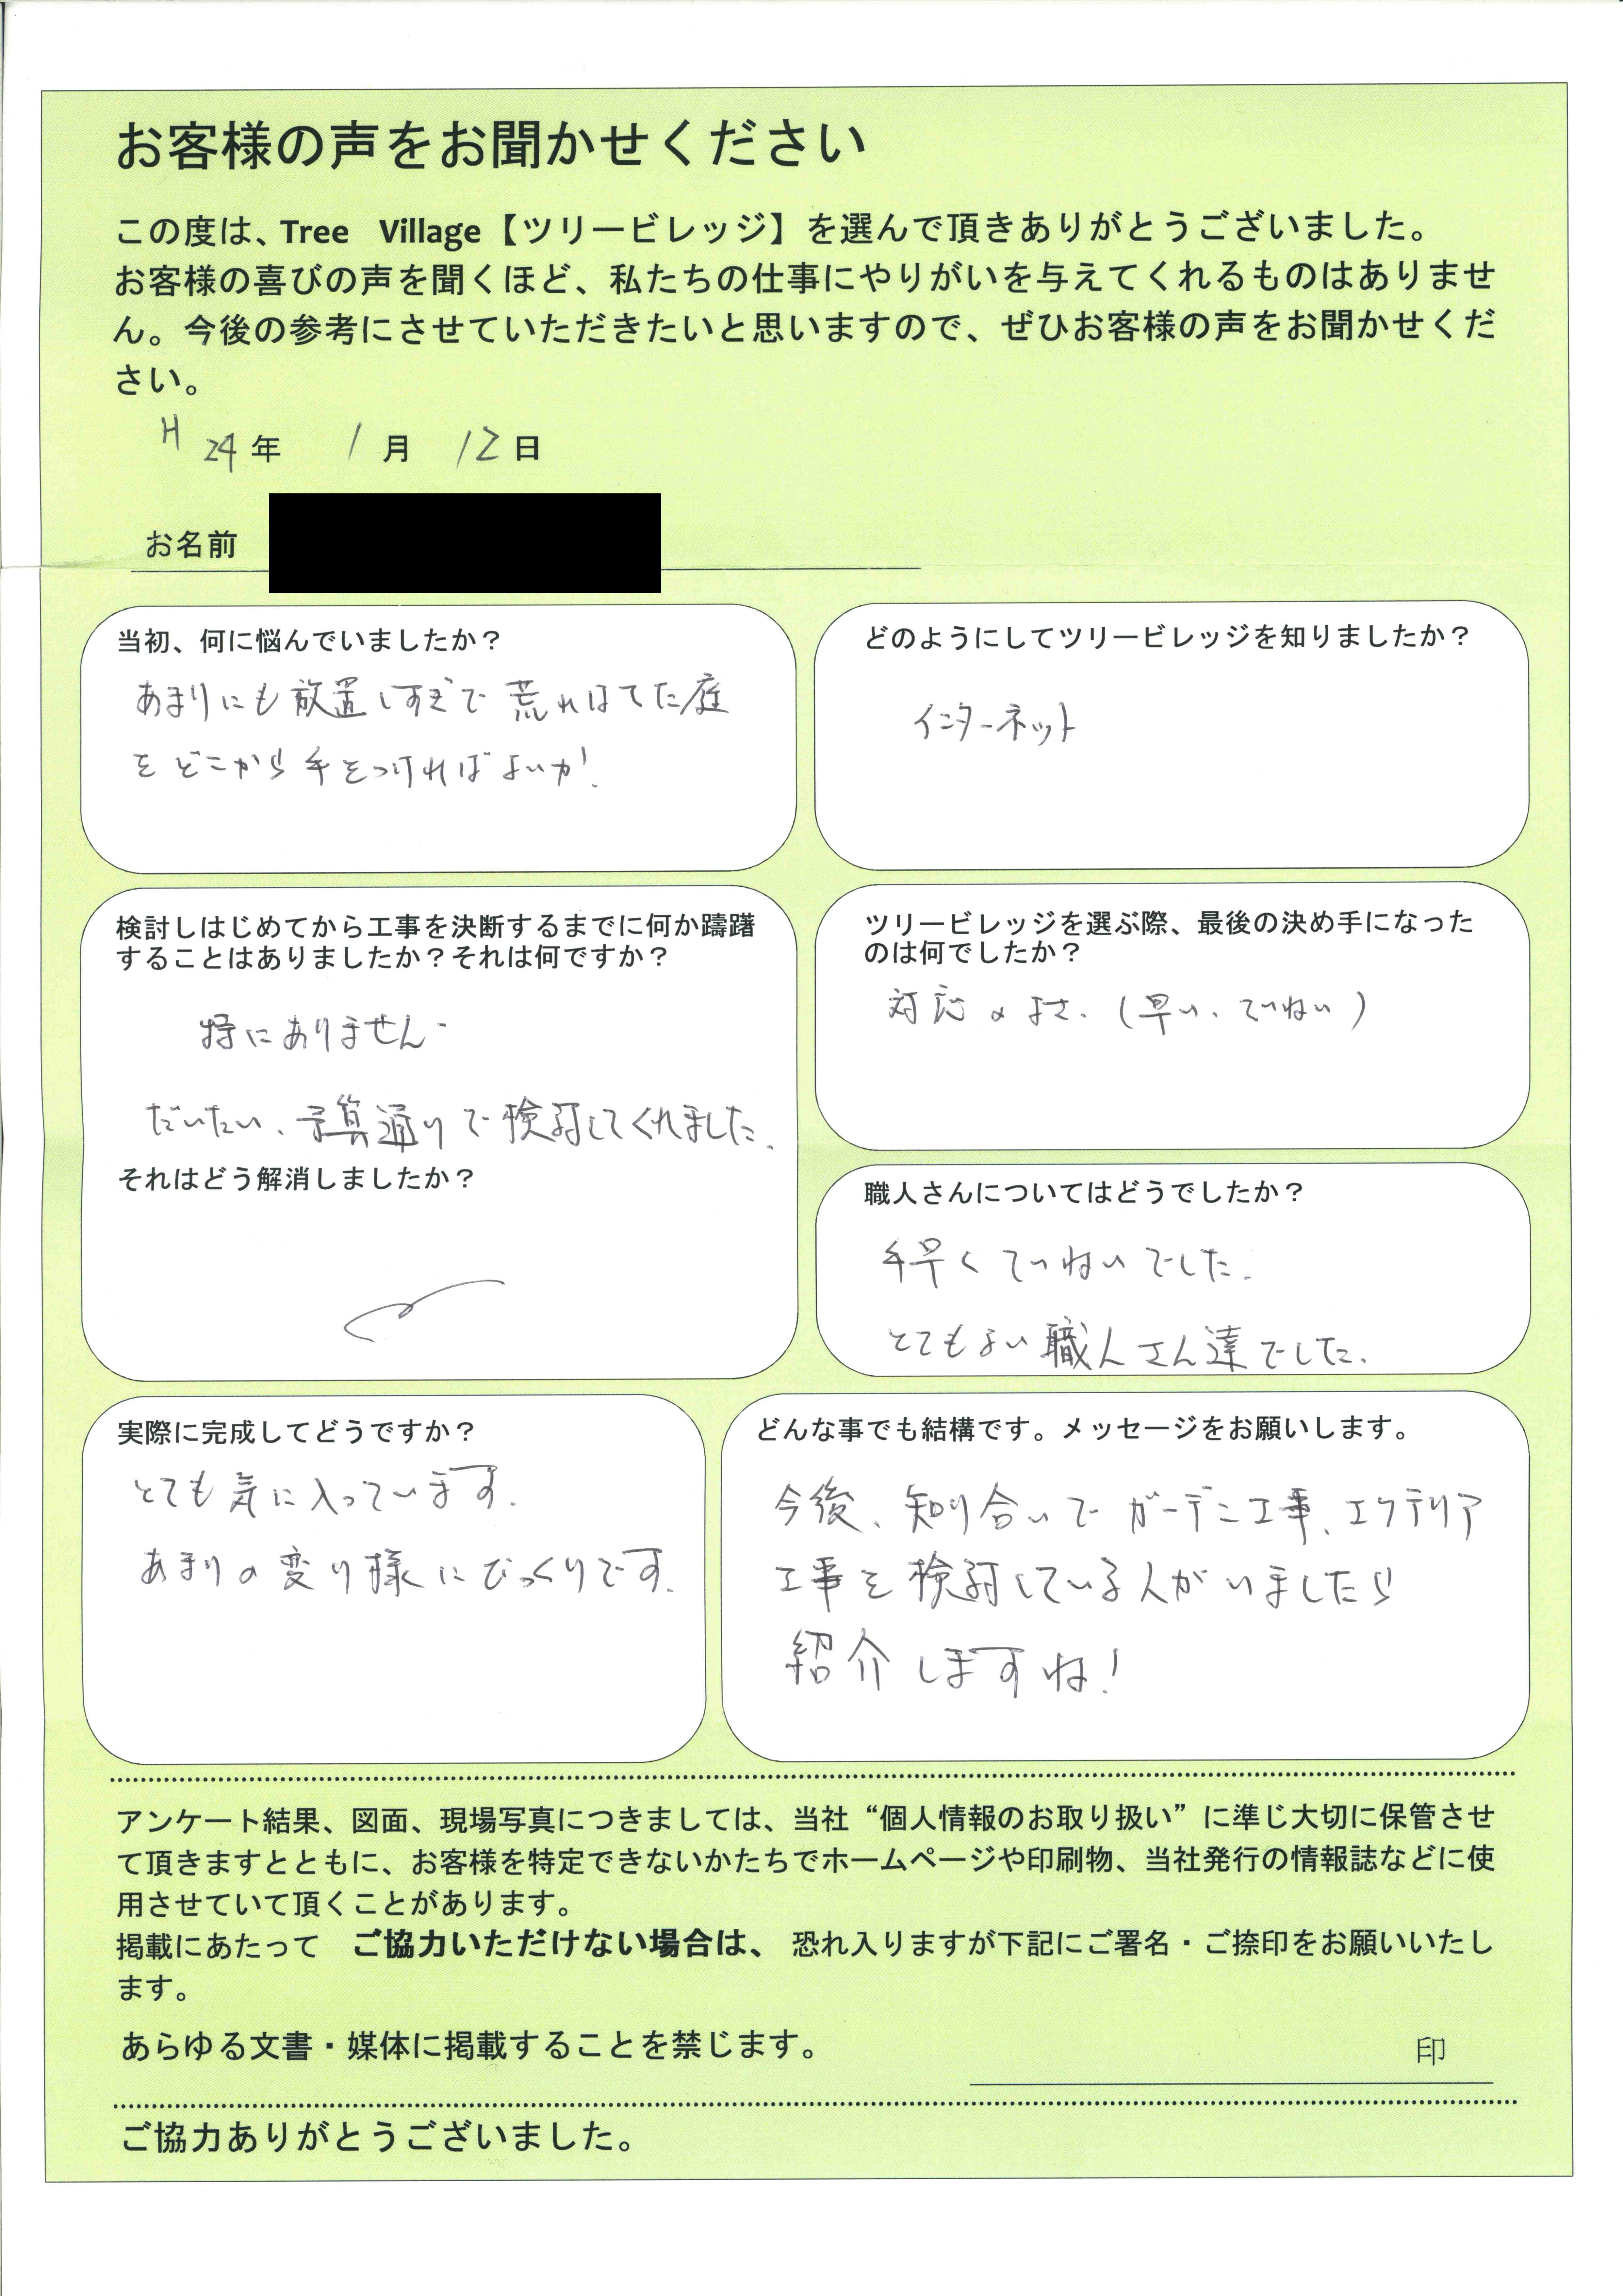 お客様の声をお聞かせください
この度は、Tree Village【ツリービレッジ】を選んで頂きありがとうございました。
お客様の喜びの声を聞くほど、私たちの仕事にやりがいを与えてくれるものはありませ
ん。今後の参考にさせていただきたいと思いますので、ぜひお客様の声をお聞かせくだ
さい。
H 24年 1月 12日
お名前
当初、何に悩んでいましたか？
あまりにも放置しすぎで荒れはてた庭
をどこから手をつければよいか!
どのようにしてツリービレッジを知りましたか？
インターネット
検討しはじめてから工事を決断するまでに何か躊躇
することはありましたか？それは何ですか？
特にありません
だいたい、予算通りで検討してくれました。
それはどう解消しましたか？
ツリービレッジを選ぶ際、最後の決め手になった
のは何でしたか？
対応のよさ。(早い、ていねい)
職人さんについてはどうでしたか？
手早くていねいでした。
とてもよい職人さん達でした。
実際に完成してどうですか？
とても気に入っています。
あまりの変り様にびっくりです。
どんな事でも結構です。メッセージをお願いします。
今後、知り合いでガーデン工事、エクテリア
工事を検討している人がいましたら
紹介しますね!
アンケート結果、図面、現場写真につきましては、当社“個人情報のお取り扱い”に準じ大切に保管させ
て頂きますとともに、お客様を特定できないかたちでホームページや印刷物、当社発行の情報誌などに使
用させていて頂くことがあります。
掲載にあたって ご協力いただけない場合は、恐れ入りますが下記にご署名・ご捺印をお願いいたし
ます。
あらゆる文書・媒体に掲載することを禁じます。
印
ご協力ありがとうございました。